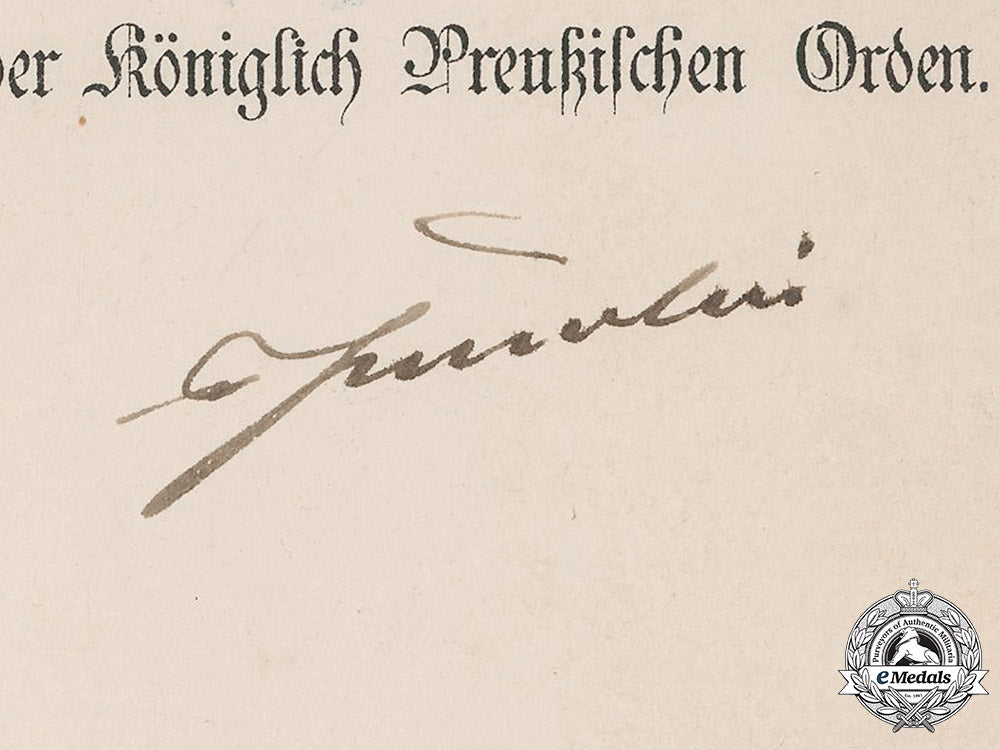 der Königlich Preußischen Orden.
Purveyors of Authentic Militaria
eMedals